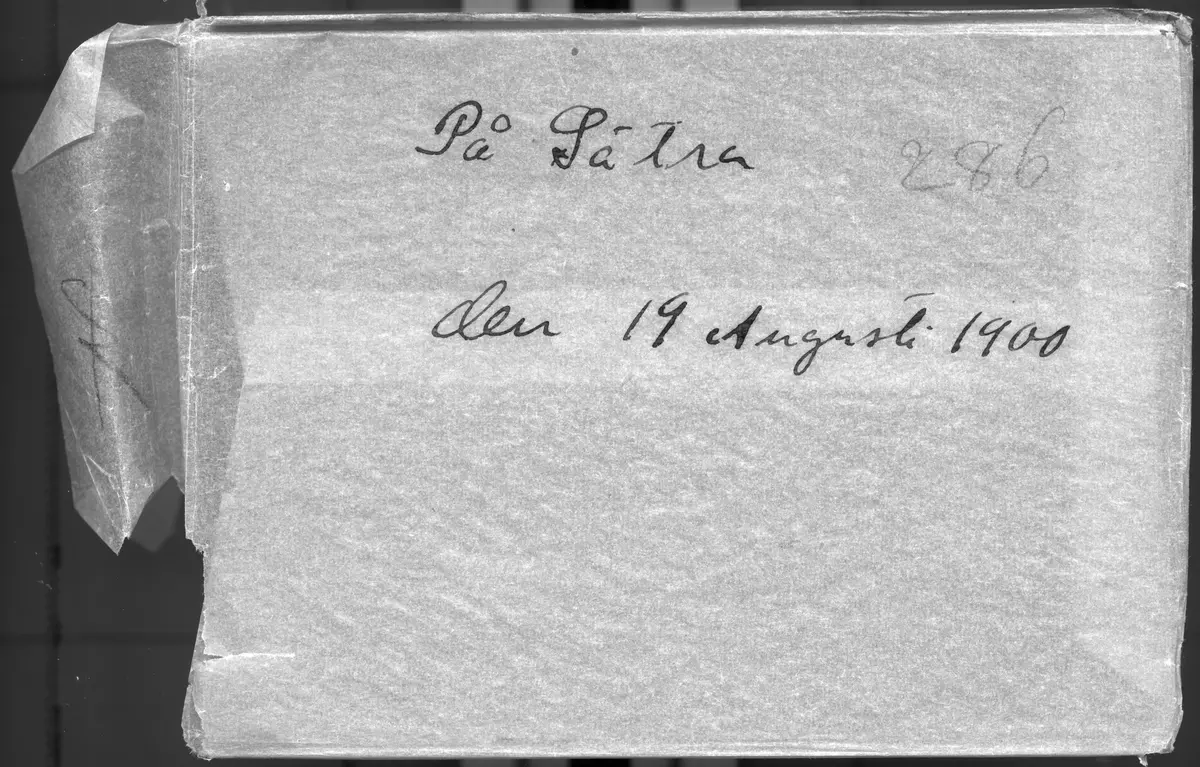 På Sätra 286
den 19 Augusti 1900